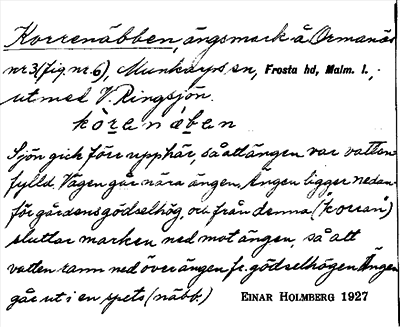 Korrenäbben, ängsmark å Ormanäs
nr 3 (fig. nr. 6), Munkarps sn, Frosta hd, Malm. l.,
ut med V. Ringsjön.
kòrenä́ben
Sjön gick förr upp här, så att ängen var vatten-
fylld. Vägen går nära ängen. Ängen ligger nedan-
för gårdens gödselhög, och från denna ("korran")
sluttar marken ned mot ängen, så att
vatten rann ned över ängen fr. gödselhögen. Ängen
går ut i en spets (näbb.)
EINAR HOLMBERG 1927